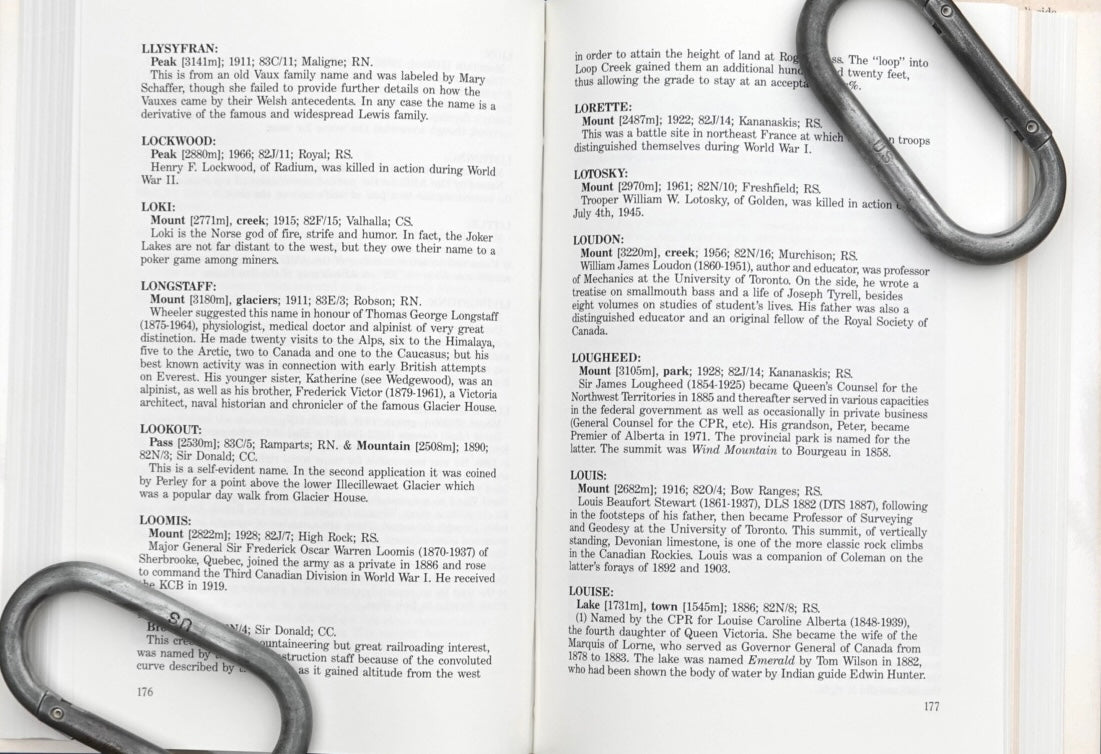 LLYSYFRAN:
Peak [3141m]; 1911; 83C/11; Maligne; RN.
This is from an old Vaux family name and was labeled by Mary
Schaffer, though she failed to provide further details on how the
Vauxes came by their Welsh antecedents. In any case the name is a
derivative of the famous and widespread Lewis family.
LOCKWOOD:
Peak [2880m]; 1966; 82J/11; Royal; RS.
Henry F. Lockwood, of Radium, was killed in action during World
War II.
LOKI:
Mount [2771m], creek; 1915; 82F/15; Valhalla; CS.
Loki is the Norse god of fire, strife and humor. In fact, the Joker
Lakes are not far distant to the west, but they owe their name to a
poker game among miners.
LONGSTAFF:
Mount [3180m], glaciers; 1911; 83E/3; Robson; RN.
Wheeler suggested this name in honour of Thomas George Longstaff
(1875-1964), physiologist, medical doctor and alpinist of very great
distinction. He made twenty visits to the Alps, six to the Himalaya,
five to the Arctic, two to Canada and one to the Caucasus; but his
best known activity was in connection with early British attempts
on Everest. His younger sister, Katherine (see Wedgewood), was an
alpinist, as well as his brother, Frederick Victor (1879-1961), a Victoria
architect, naval historian and chronicler of the famous Glacier House.
LOOKOUT:
Pass [2530m]; 83C/5; Ramparts; RN. & Mountain [2508m]; 1890;
82N/3; Sir Donald; CC.
This is a self-evident name. In the second application it was coined
by Perley for a point above the lower Illecillewaet Glacier which
was a popular day walk from Glacier House.
LOOMIS:
Mount [2822m]; 1928; 82J/7; High Rock; RS.
Major General Sir Frederick Oscar Warren Loomis (1870-1937) of
Sherbrooke, Quebec, joined the army as a private in 1886 and rose
to command the Third Canadian Division in World War I. He received
the KCB in 1919.
N/4; Sir Donald; CC.
This ountaineering but great railroading interest,
was named by struction staff because of the convoluted
curve described by as it gained altitude from the west
176
in order to attain the height of land at Rog ss. The "loop" into
Loop Creek gained them an additional hund d twenty feet,
thus allowing the grade to stay at an accepta %.
LORETTE:
Mount [2487m]; 1922; 82J/14; Kananaskis; RS.
This was a battle site in northeast France at which n troops
distinguished themselves during World War I.
LOTOSKY:
Mount [2970m]; 1961; 82N/10; Freshfield; RS.
Trooper William W. Lotosky, of Golden, was killed in action
July 4th, 1945.
LOUDON:
Mount [3220m], creek; 1956; 82N/16; Murchison; RS.
William James Loudon (1860-1951), author and educator, was professor
of Mechanics at the University of Toronto. On the side, he wrote a
treatise on smallmouth bass and a life of Joseph Tyrell, besides
eight volumes on studies of student's lives. His father was also a
distinguished educator and an original fellow of the Royal Society of
Canada.
LOUGHEED:
Mount [3105m], park; 1928; 82J/14; Kananaskis; RS.
Sir James Lougheed (1854-1925) became Queen's Counsel for the
Northwest Territories in 1885 and thereafter served in various capacities
in the federal government as well as occasionally in private business
(General Counsel for the CPR, etc). His grandson, Peter, became
Premier of Alberta in 1971. The provincial park is named for the
latter. The summit was Wind Mountain to Bourgeau in 1858.
LOUIS:
Mount [2682m]; 1916; 82O/4; Bow Ranges; RS.
Louis Beaufort Stewart (1861-1937), DLS 1882 (DTS 1887), following
in the footsteps of his father, then became Professor of Surveying
and Geodesy at the University of Toronto. This summit, of vertically
standing, Devonian limestone, is one of the more classic rock climbs
in the Canadian Rockies. Louis was a companion of Coleman on the
latter's forays of 1892 and 1903.
LOUISE:
Lake [1731m], town [1545m]; 1886; 82N/8; RS.
(1) Named by the CPR for Louise Caroline Alberta (1848-1939),
the fourth daughter of Queen Victoria. She became the wife of the
Marquis of Lorne, who served as Governor General of Canada from
1878 to 1883. The lake was named Emerald by Tom Wilson in 1882,
who had been shown the body of water by Indian guide Edwin Hunter.
177
US
US